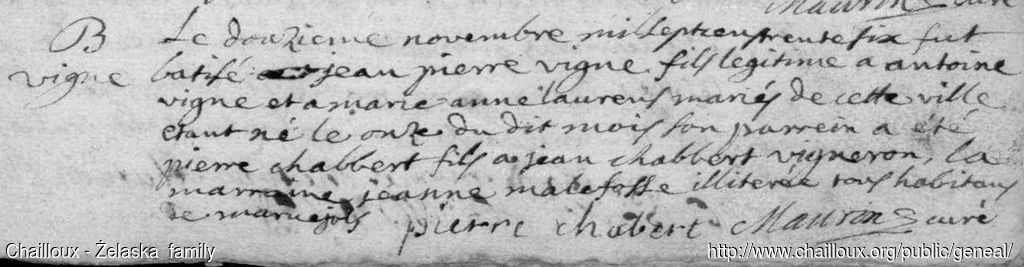 Mauron curé
B Le douzieme novembre mil sept cens trente six fut
vigne batisé jean pierre vigne fils legitime a antoine
vigne et a marie anne laurens mariés de cette ville
etant né le onze du dit mois son parrein a été
pierre chabbert fils a jean chabbert vigneron, la
marraine jeanne malefosse illiterée tous habitans
de maruejols pierre chabert Mauron curé
Chailloux - Żelaska family
http://www.chailloux.org/public/geneal/